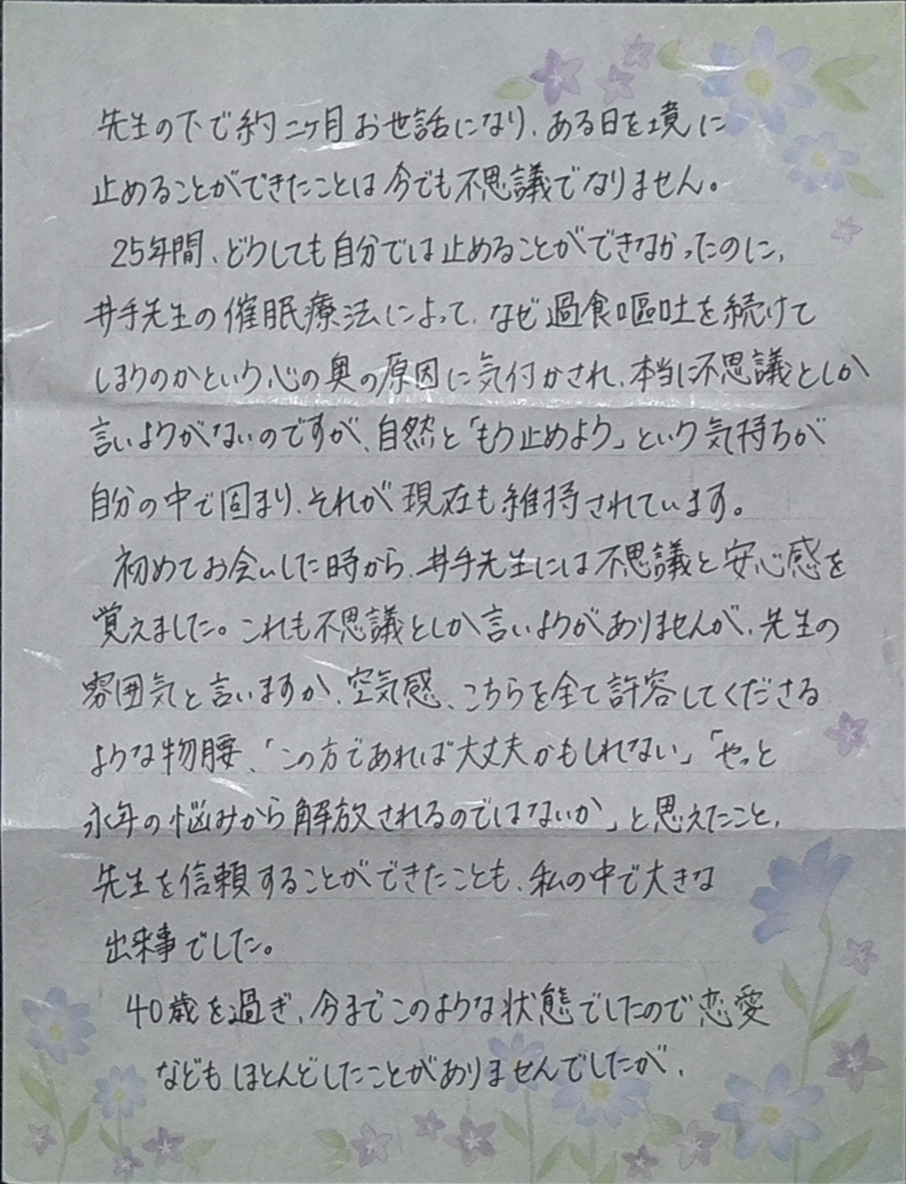 先生の下で約二ヶ月お世話になり、ある日を境に
止めることができたことは今でも不思議でなりません。
25年間、どうしても自分では止めることができなかったのに、
井手先生の催眠療法によって、なぜ過食嘔吐を続けて
しまうのかという心の奥の原因に気付かされ、本当に不思議としか
言いようがないのですが、自然と「もう止めよう」という気持ちが
自分の中で固まり、それが現在も維持されています。
初めてお会いした時から、井手先生には不思議と安心感を
覚えました。これも不思議としか言いようがありませんが、先生の
雰囲気と言いますか、空気感、こちらを全て許容してくださる
ような物腰、「この方であれば大丈夫かもしれない」「やっと
永年の悩みから解放されるのではないか」と思えたこと、
先生を信頼することができたことも、私の中で大きな
出来事でした。
40歳を過ぎ、今までこのような状態でしたので恋愛
などもほとんどしたことがありませんでしたが、